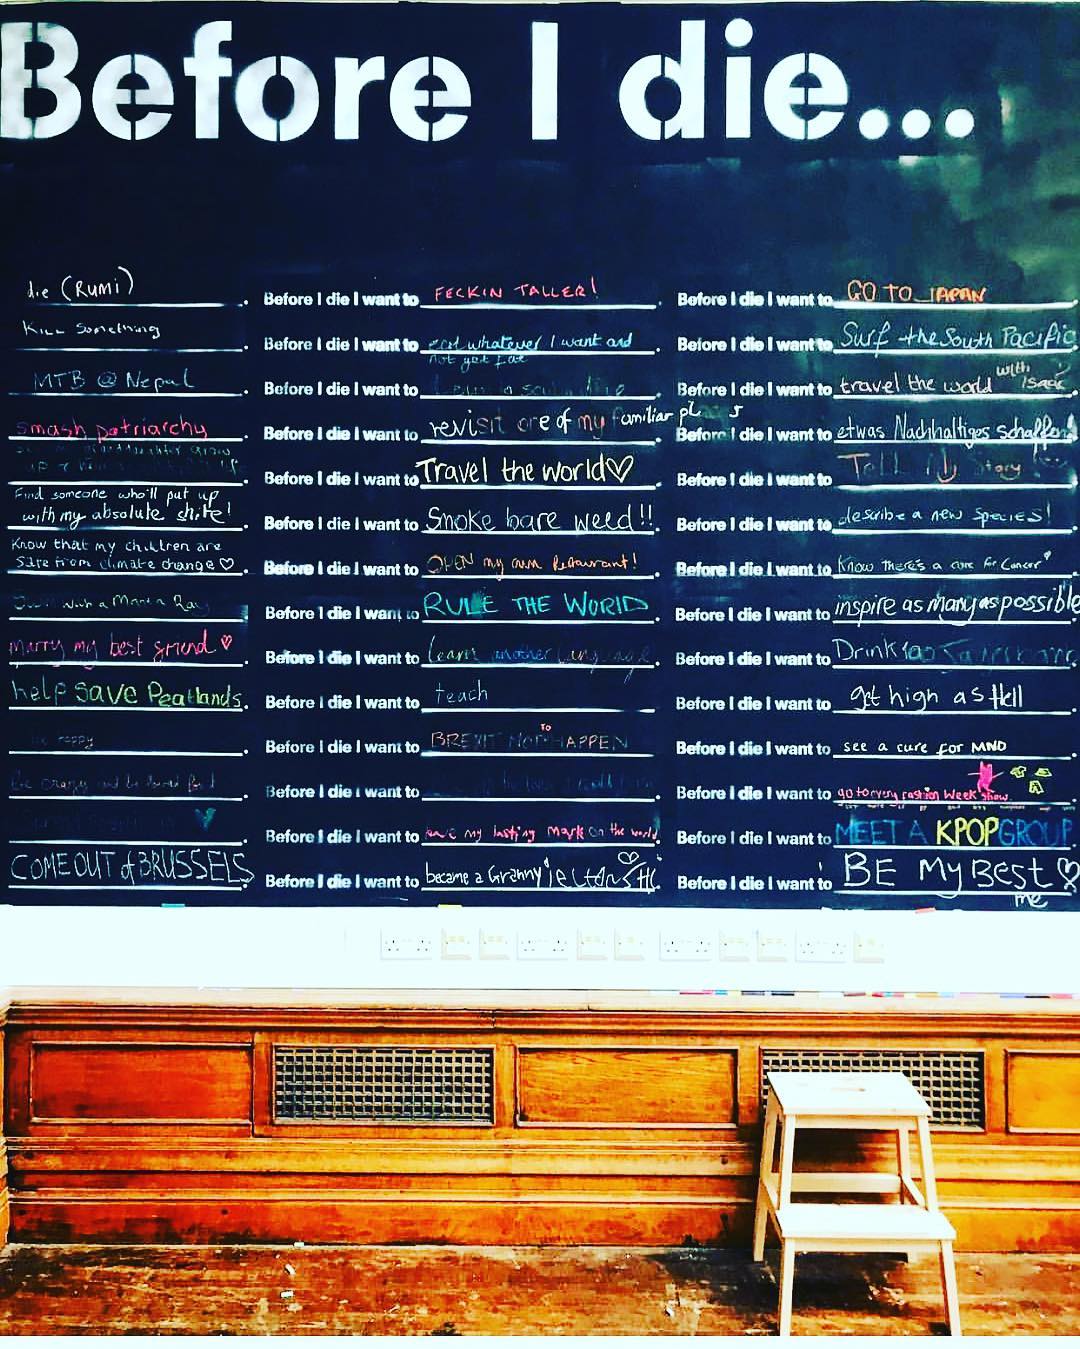 Before I die...
die (Rumi).
Before I die I want to FECKIN TALLER!.
Before I die I want to GO TO JAPAN.
Kill Something.
Before I die I want to eat whatever I want and
not get fat
Before I die I want to Surf the South Pacific
MTB @ Nepal.
Before I die I want to
Before I die I want to travel the world with Isaac
smash patriarchy.
Before I die I want to revisit one of my familiar
Before I die I want to etwas Nachhaltiges schaffen!
up
Before I die I want to Travel the world♡
Before I die I want to Tell My Story
Find someone who'll put up
with my absolute shite!
Before I die I want to Smoke bare weed!!
Before I die I want to describe a new species!
Know that my children are
safe from climate change♡
Before I die I want to OPEN my own Restaurant!
Before I die I want to Know there's a cure for Cancer
with a Manta Ray
Before I die I want to RULE THE WORLD
Before I die I want to inspire as many as possible
Marry my best friend♡
Before I die I want to learn another language
Before I die I want to Drink
help save Peatlands.
Before I die I want to teach
Before I die I want to get high as Hell
be happy
Before I die I want to BREXIT NOT TO HAPPEN
Before I die I want to see a cure for MND
be crazy and be loved for it
Before I die I want to
Before I die I want to go to every fashion week show.
Before I die I want to leave my lasting mark on the world
Before I die I want to MEET A KPOP GROUP
COME OUT of BRUSSELS
Before I die I want to became a Granny
Before I die I want to BE My BEST♡
me